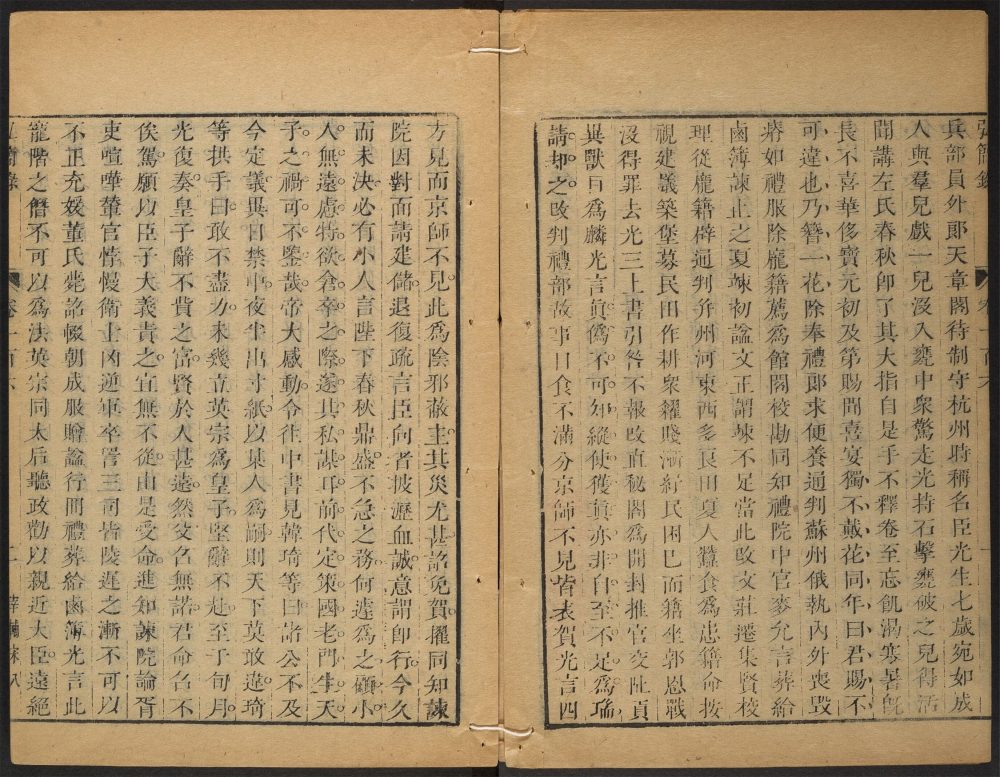 弘簡錄
卷一百六
兵部員外郎天章閣待制守杭州時稱名臣光生七歲宛如成
人與羣兒戲一兒沒入甕中衆驚走光持石擊甕破之兒得活
聞講左氏春秋卽了其大指自是手不釋卷至忘飢渴寒暑旣
長不喜華侈寶元初及第賜聞喜宴獨不戴花同年曰君賜不
可違也乃簪一花除奉禮郎求便養通判蘇州俄執內外喪毀
瘠如禮服除龐籍薦爲館閣校勘同知禮院中官麥允言葬給
鹵簿諫止之夏竦初諡文正謂竦不足當此改文莊遷集賢校
理從龐籍辟通判并州河東西多良田夏人蠶食爲患籍命按
視建議築堡募民田作耕衆糴賤漸紓民困已而籍坐郭恩戰
沒得罪去光三上書引咎不報改直秘閣爲開封推官交阯貢
異獸曰爲麟光言眞僞不可知縱使獲眞亦非自至不足爲瑞
請却之改判禮部故事日食不滿分京師不見皆表賀光言四
方見而京師不見此爲陰邪蔽主其災尤甚詔免賀擢同知諫
院因對面請建儲退復疏言臣向者披瀝血誠意謂卽行今久
而未決必有小人言陛下春秋鼎盛不急之務何遽爲之爾小
人無遠慮特欲倉卒之際遂其私謀耳前代定策國老門生天
子之禍可不鑒哉帝大感動令往中書見韓琦等曰諸公不及
今定議異日禁中夜半出寸紙以某人爲嗣則天下莫敢違琦
等拱手曰敢不盡力未幾立英宗爲皇子堅辭不赴至于旬月
光復奏皇子辭不貲之富賢於人甚遠然父名無諾君命名不
俟駕願以臣子大義責之宜無不從由是受命進知諫院論胥
吏喧嘩輦官悖慢衛士凶逆軍卒詈三司皆陵遲之漸不可以
不正充媛董氏薨詔輟朝成服贈諡行冊禮葬給鹵簿光言此
寵階之僭不可以爲法英宗同太后聽政勸以親近大臣遠絕
弘簡錄
卷一百六
二